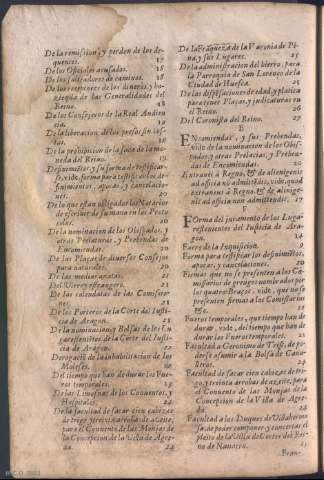 De la remission, y perdon de los dequentes. 17
De los Oficiales acusados. 18
De los salteadores de caminos. 18
De los receptores de los dineros, y hazienda de las Generalidades del Reino. 48
De los Consejeros de la Real Audiencia. 19
De la liberacion de los presos sin costas. 18
De la prohibicion de la saca de moneda del Reino. 19
De lo que estan obligados los Notarios de escriuir de su mano en los Protocolos. 20
De la nominacion de los Obispados, y otras Prelaturas, y Prebendas de Encomiendas. 20
De las Plaças de diuersos Consejos para naturales. 20
De las medias anatas. 21
Del Virrey estrangero. 21
De las calendatas de los Comissarios. 21
De los Porteros de la Corte del Iusticia de Aragon. 21
De la nominacion, y Bolsas de los Lugarestenientes de la Corte del Iusticia de Aragon. 22
Derogaciõ de la inhabilitacion de los Moteses. 22
Del tiempo que han de durar los Fueros temporales. 23
De las Limosnas de los Conuentos, y Hospitales. 23
De la facultad de sacar cien cahizes de trigo, y treynta arrobas de azeite, para el Conuento de las Monjas de la Concepcion de la Villa de Agreda. 24
De la Fraqueza de la Varonia de Pina, y sus Lugares. 25
De la administracion del hierro, para la Parroquia de San Lorenço de la Ciudad de Huesca. 26
De las dispensaciones de edad, y platica para tener Plaças, y judicaturas en el Reino. 26
Del Coronista del Reino. 27
E
ENcomiendas, y sus Prebendas, vide, de la nominacion de los Obispados, y otras Prelacias, y Prebendas de Encomiendas. 20
Extranei à Regno, & de alienigenis ad officia nõ admittendis, vide, quod extraneus à Regno, & de alienigenis ad officia non admittendis. 17
F
Forma del juramento de los Lugarestenientes del Iusticia de Aragon. 14
Fuero de la Inquisicion. 9
Forma para testificar los desinimẽtos, apocas, y cancellaciones. 20
Firmas que no se presenten a los Comissarios de greuges nombrador por los quatro Braços, vide, que no se presenten firmas a los Comissarios &c. 9
Fueros temporales, que tiempo han de durar, vide, del tiempo que han de durar los Fueros temporales. 23
Facultad a Geronimo de Trist, de poderse assumir a la Bolsa de Canatros. 24
Facultad de sacar cien cahizes de trigo, y treinta arrobas de azeite, para el Conuento de las Monjas de la Concepcion de la Villa de Agreda. 24
Facultad a los Duques de Villahermosa, de poder componer, y concertar el pleito de la Villa de Cortes del Reino de Nauarra. 25
Fran-